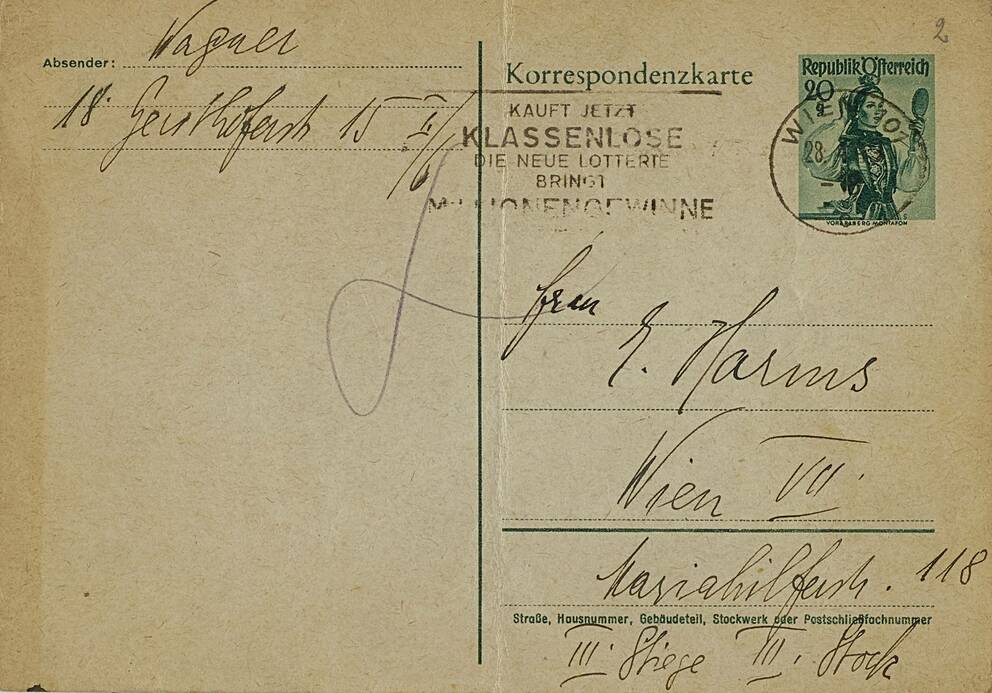 2
Absender: Wagner
18. Gersthoferstr 15 II/6
Korrespondenzkarte
Republik Österreich
20 g
VORARLBERG MONTAFON
WIEN 107
28.
KAUFT JETZT
KLASSENLOSE
DIE NEUE LOTTERIE
BRINGT
MILLIONENGEWINNE
Frau
E. Harms
Wien VII.
Mariahilferstr. 118
Straße, Hausnummer, Gebäudeteil, Stockwerk oder Postschließfachnummer
III. Stiege III. Stock